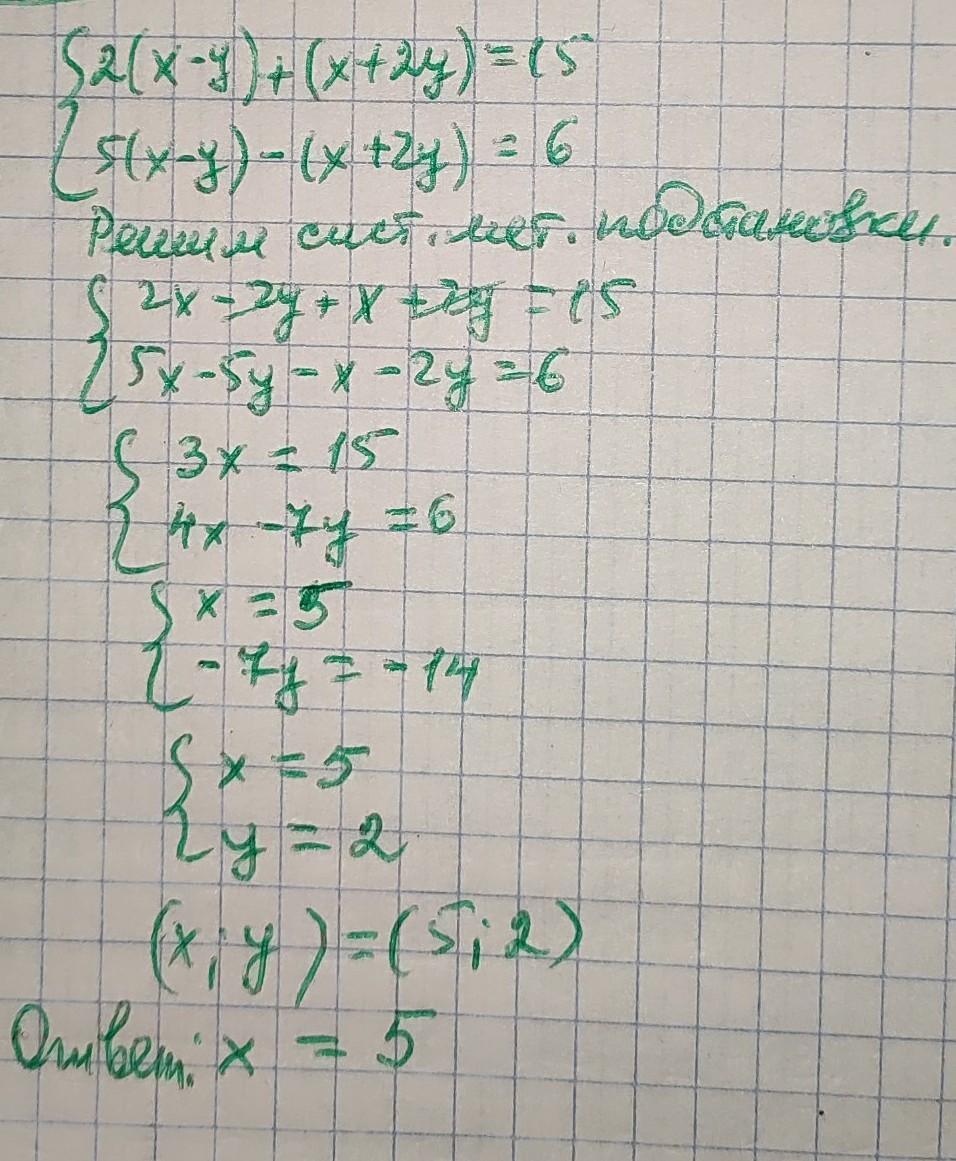 {2(x-y)+(x+2y)=15
{5(x-y)-(x+2y)=6
Решим сист. мет. подстановки.
{2x-2y+x+2y=15
{5x-5y-x-2y=6
{3x=15
{4x-7y=6
{x=5
{-7y=-14
{x=5
{y=2
(x;y)=(5;2)
Ответ: x=5